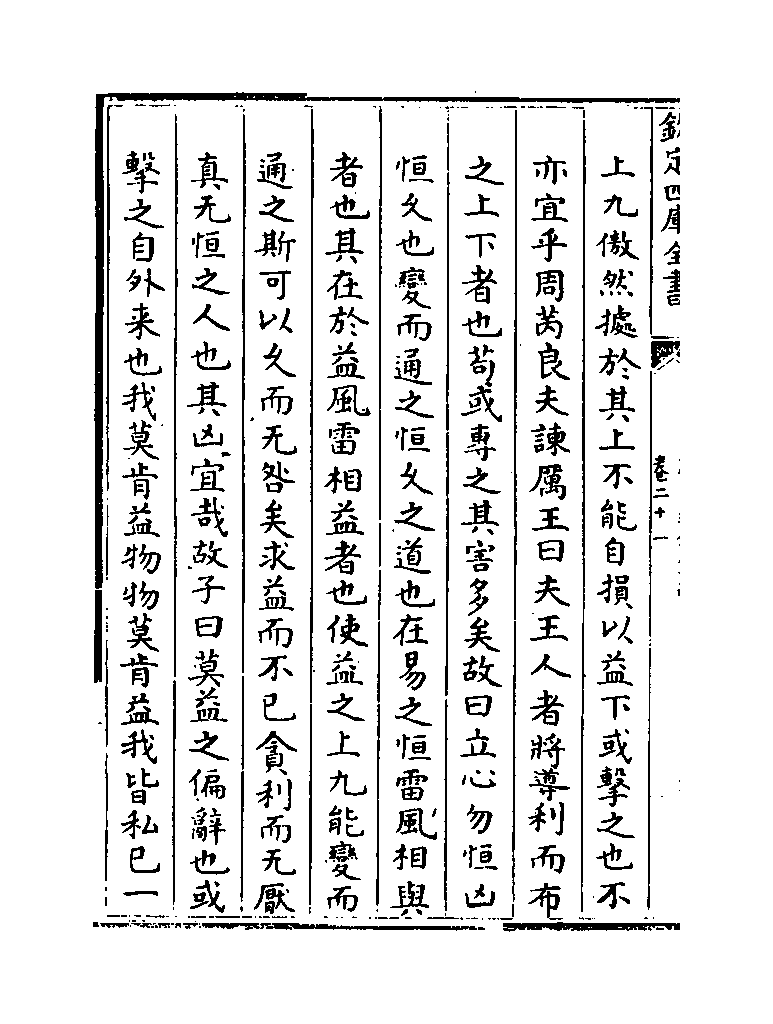 欽定四庫全書
卷二十一
上九傲然據於其上不能自損以益下或擊之也不
亦宜乎周芮良夫諫厲王曰夫王人者將導利而布
之上下者也茍或專之其害多矣故曰立心勿恒凶
恒久也變而通之恒久之道也在易之恒雷風相與
者也其在於益風雷相益者也使益之上九能變而
通之斯可以久而无咎矣求益而不已貪利而无厭
真无恒之人也其凶宜哉故子曰莫益之偏辭也或
擊之自外来也我莫肯益物物莫肯益我皆私已一